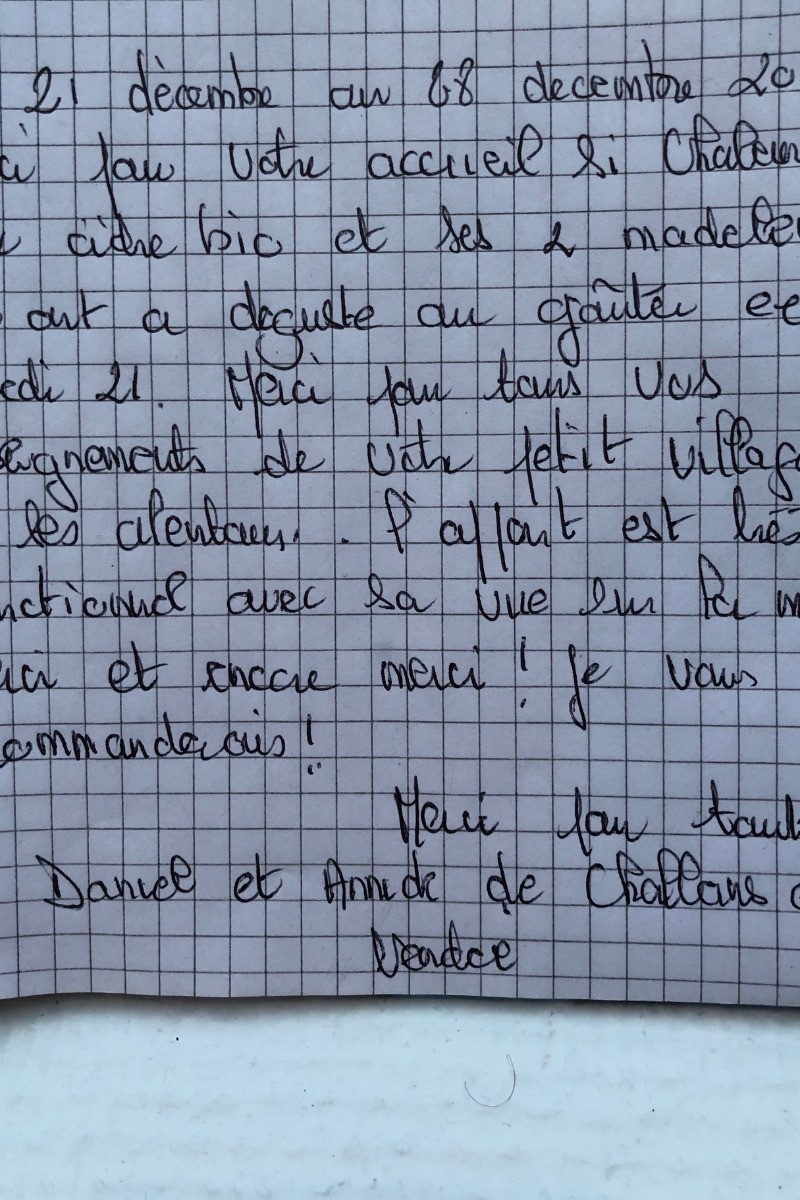 21 décembre au 28 decembre 20
ci pour votre accueil si chaleur
cidre bio et ses 2 madele
ont a degusté au goûter ce
edi 21. Merci pour tous vos
eignements de votre petit villag
les alentours. l'appart est très
nctionnel avec sa vue sur la m
ci et encore merci ! je vous
ommanderais !
Merci pour tout
Daniel et Annick de Challans
Vendée